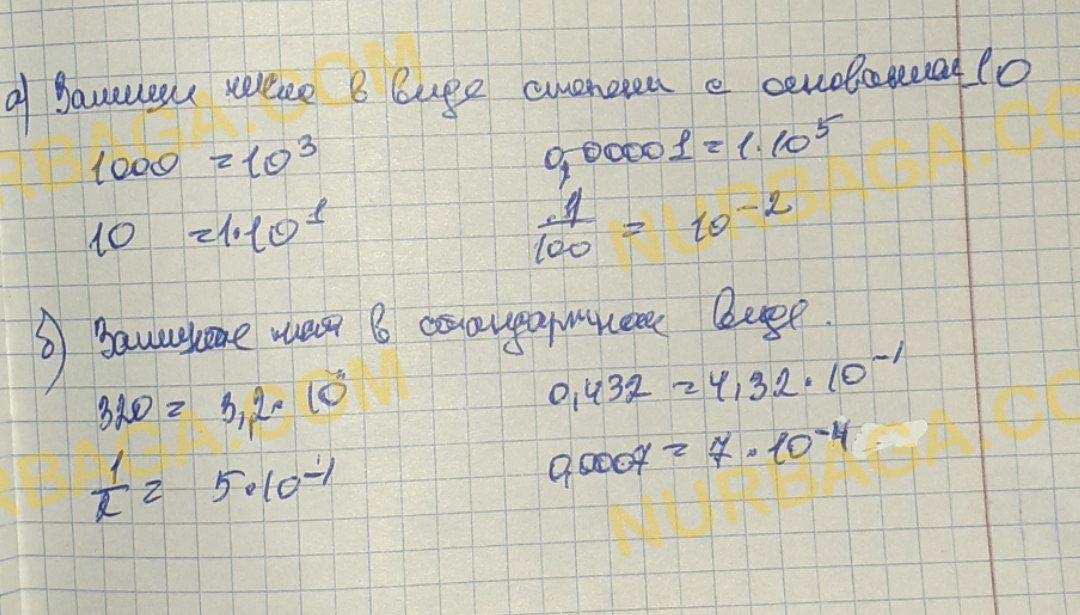 а) Запиши числа в виде степени с основанием 10
1000 = 10³ 0,00001 = 1·10⁵
10 = 1·10¹ 1/100 = 10⁻²
б) Запишите числа в стандартном виде.
320 = 3,2· 10 0,432 = 4,32·10⁻¹
1/2 = 5·10⁻¹ 0,0007 = 7·10⁻⁴
NURBAGA.COM
NURBAGA.COM
NURBAGA.COM
NURBAGA.COM